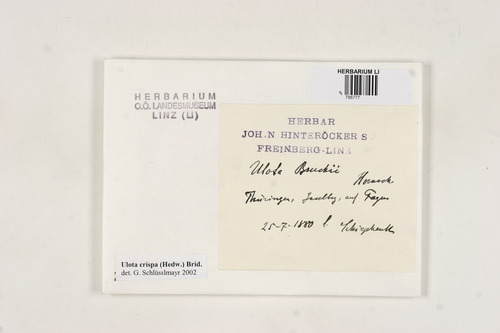 HERBARIUM LI
HERBARIUM
O.Ö. LANDESMUSEUM
LINZ (LI)
HERBAR
JOH.N HINTERÖCKER S
FREINBERG-LINZ
Ulota Bruchii
Hornsch
Thüringen, auf Fagus
25-7-1880 l.
Ulota crispa (Hedw.) Brid.
det. G. Schlüsslmayr 2002